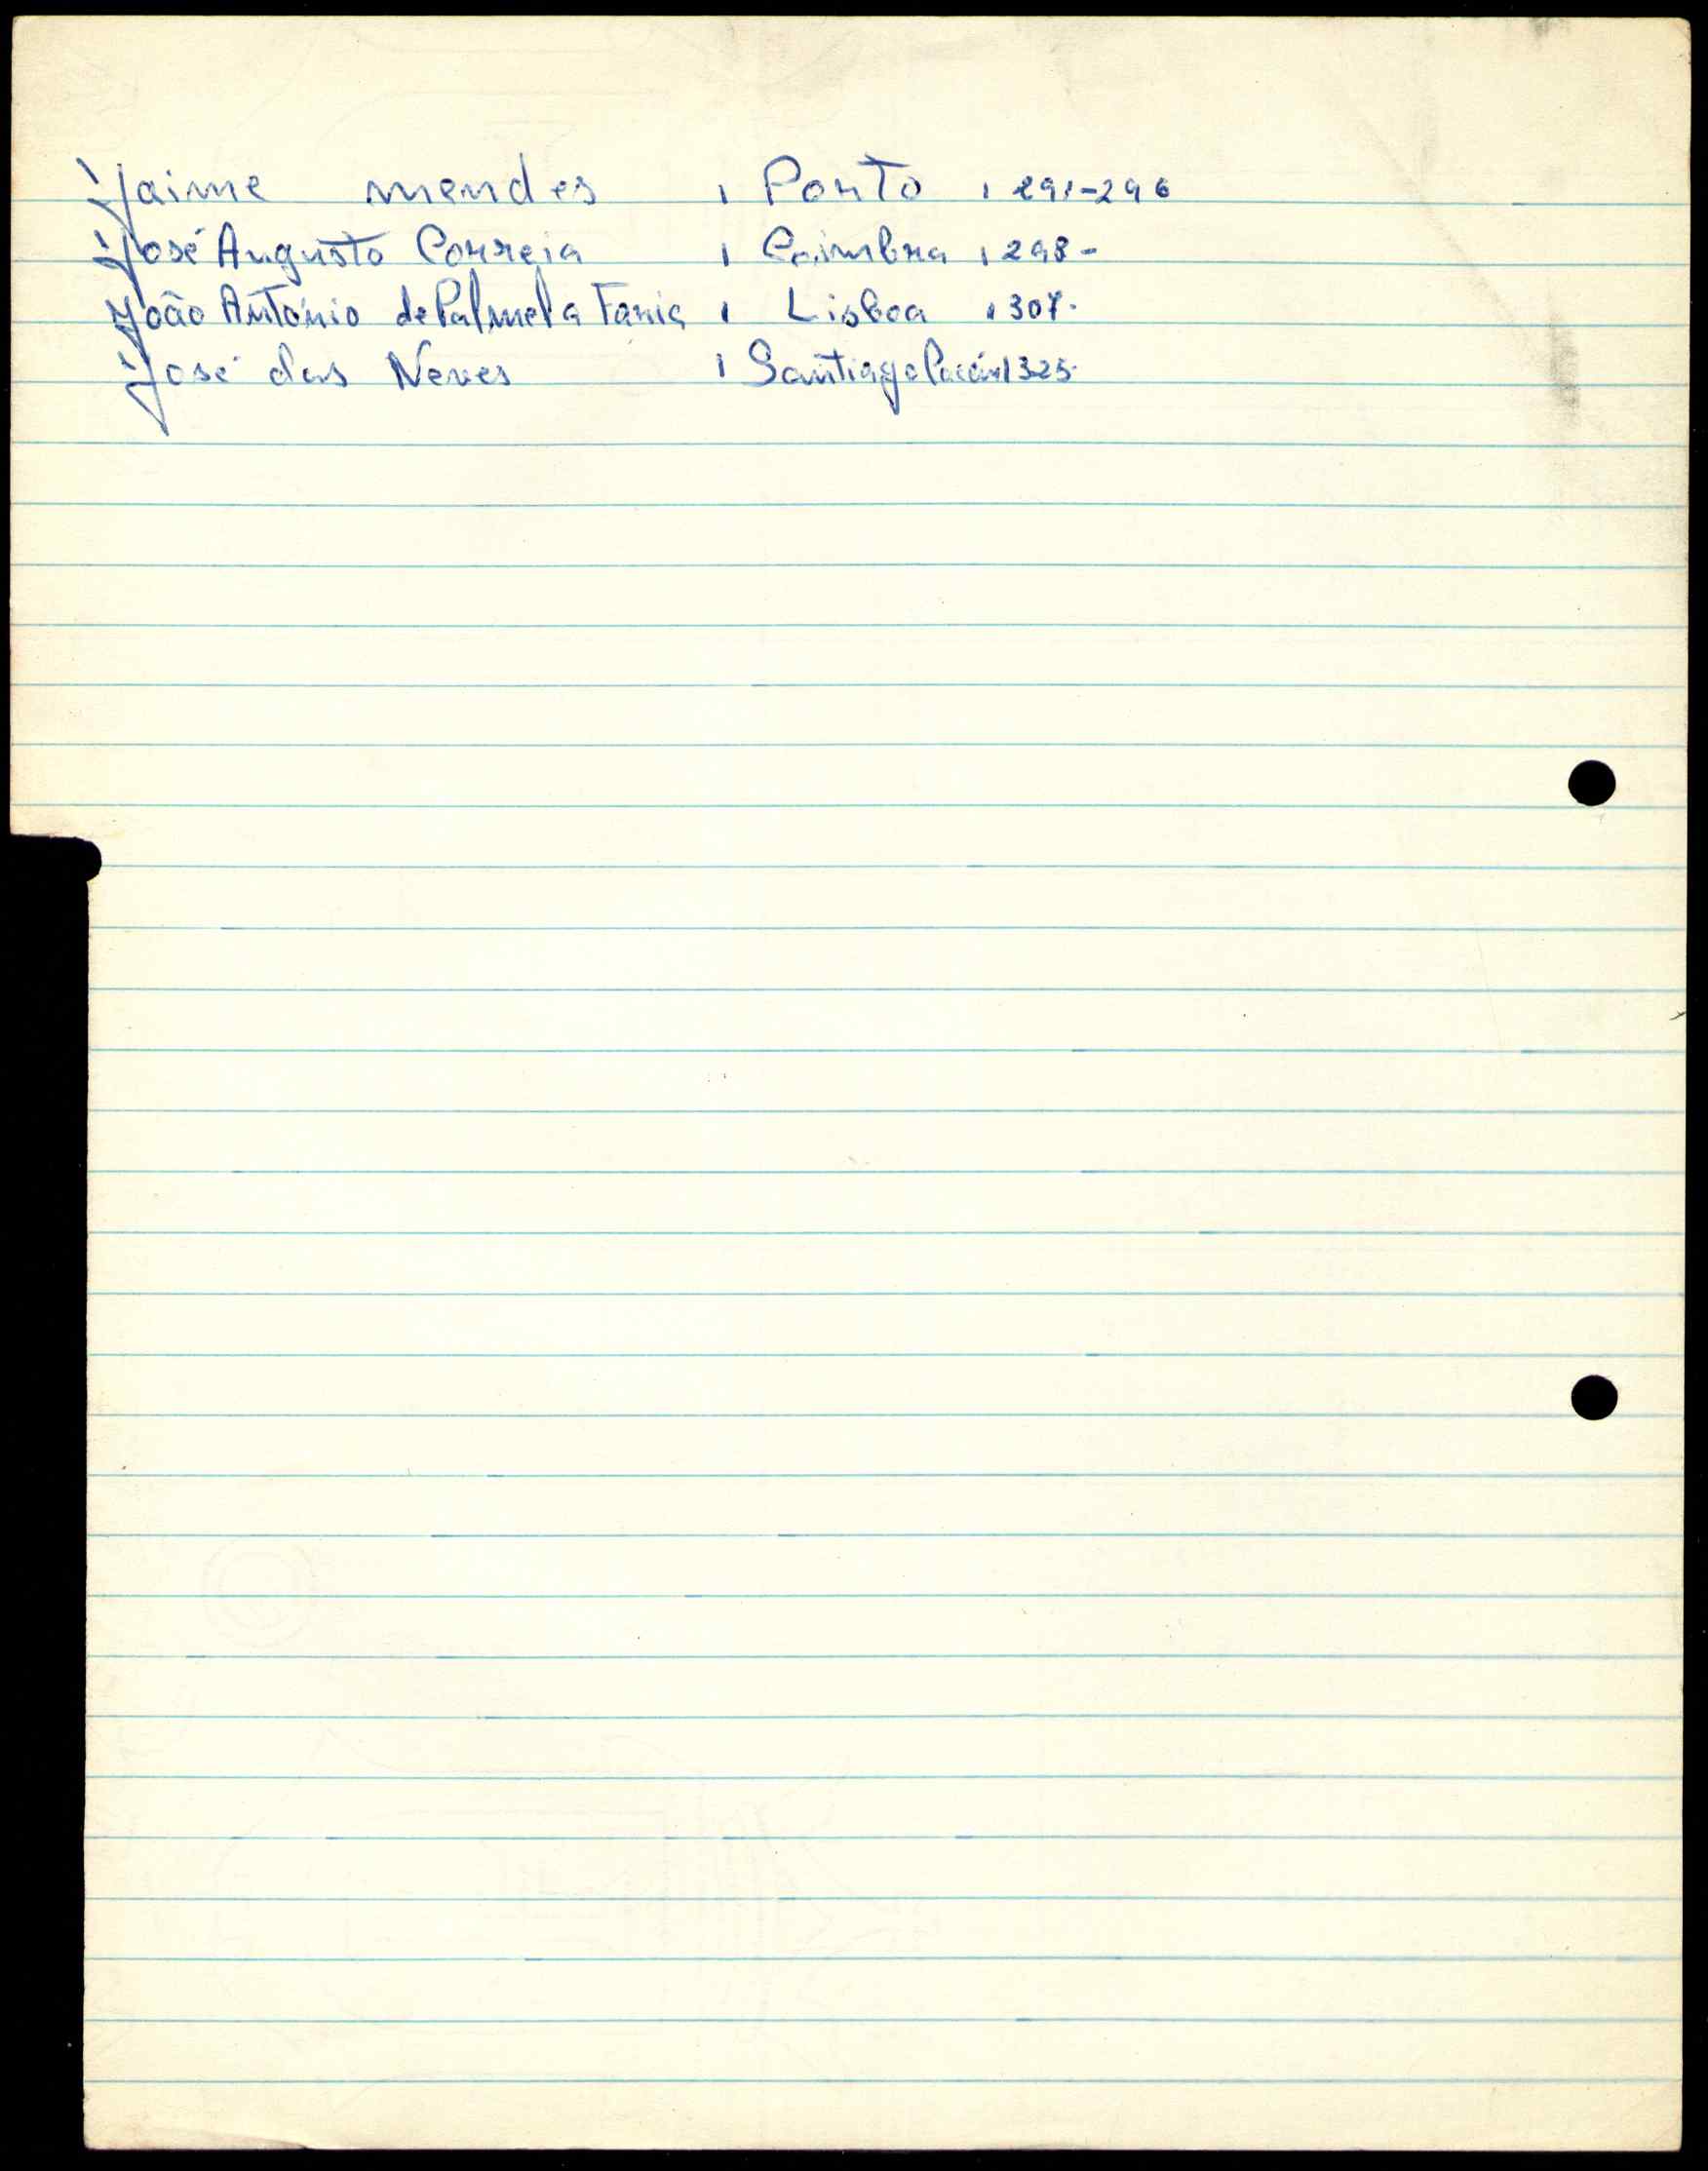 Jaime mendes , Porto , 291-296
José Augusto Correia , Coimbra , 298-
João António de Palmela Faria , Lisboa , 307.
José das Neves , Santiago Cacém 325.